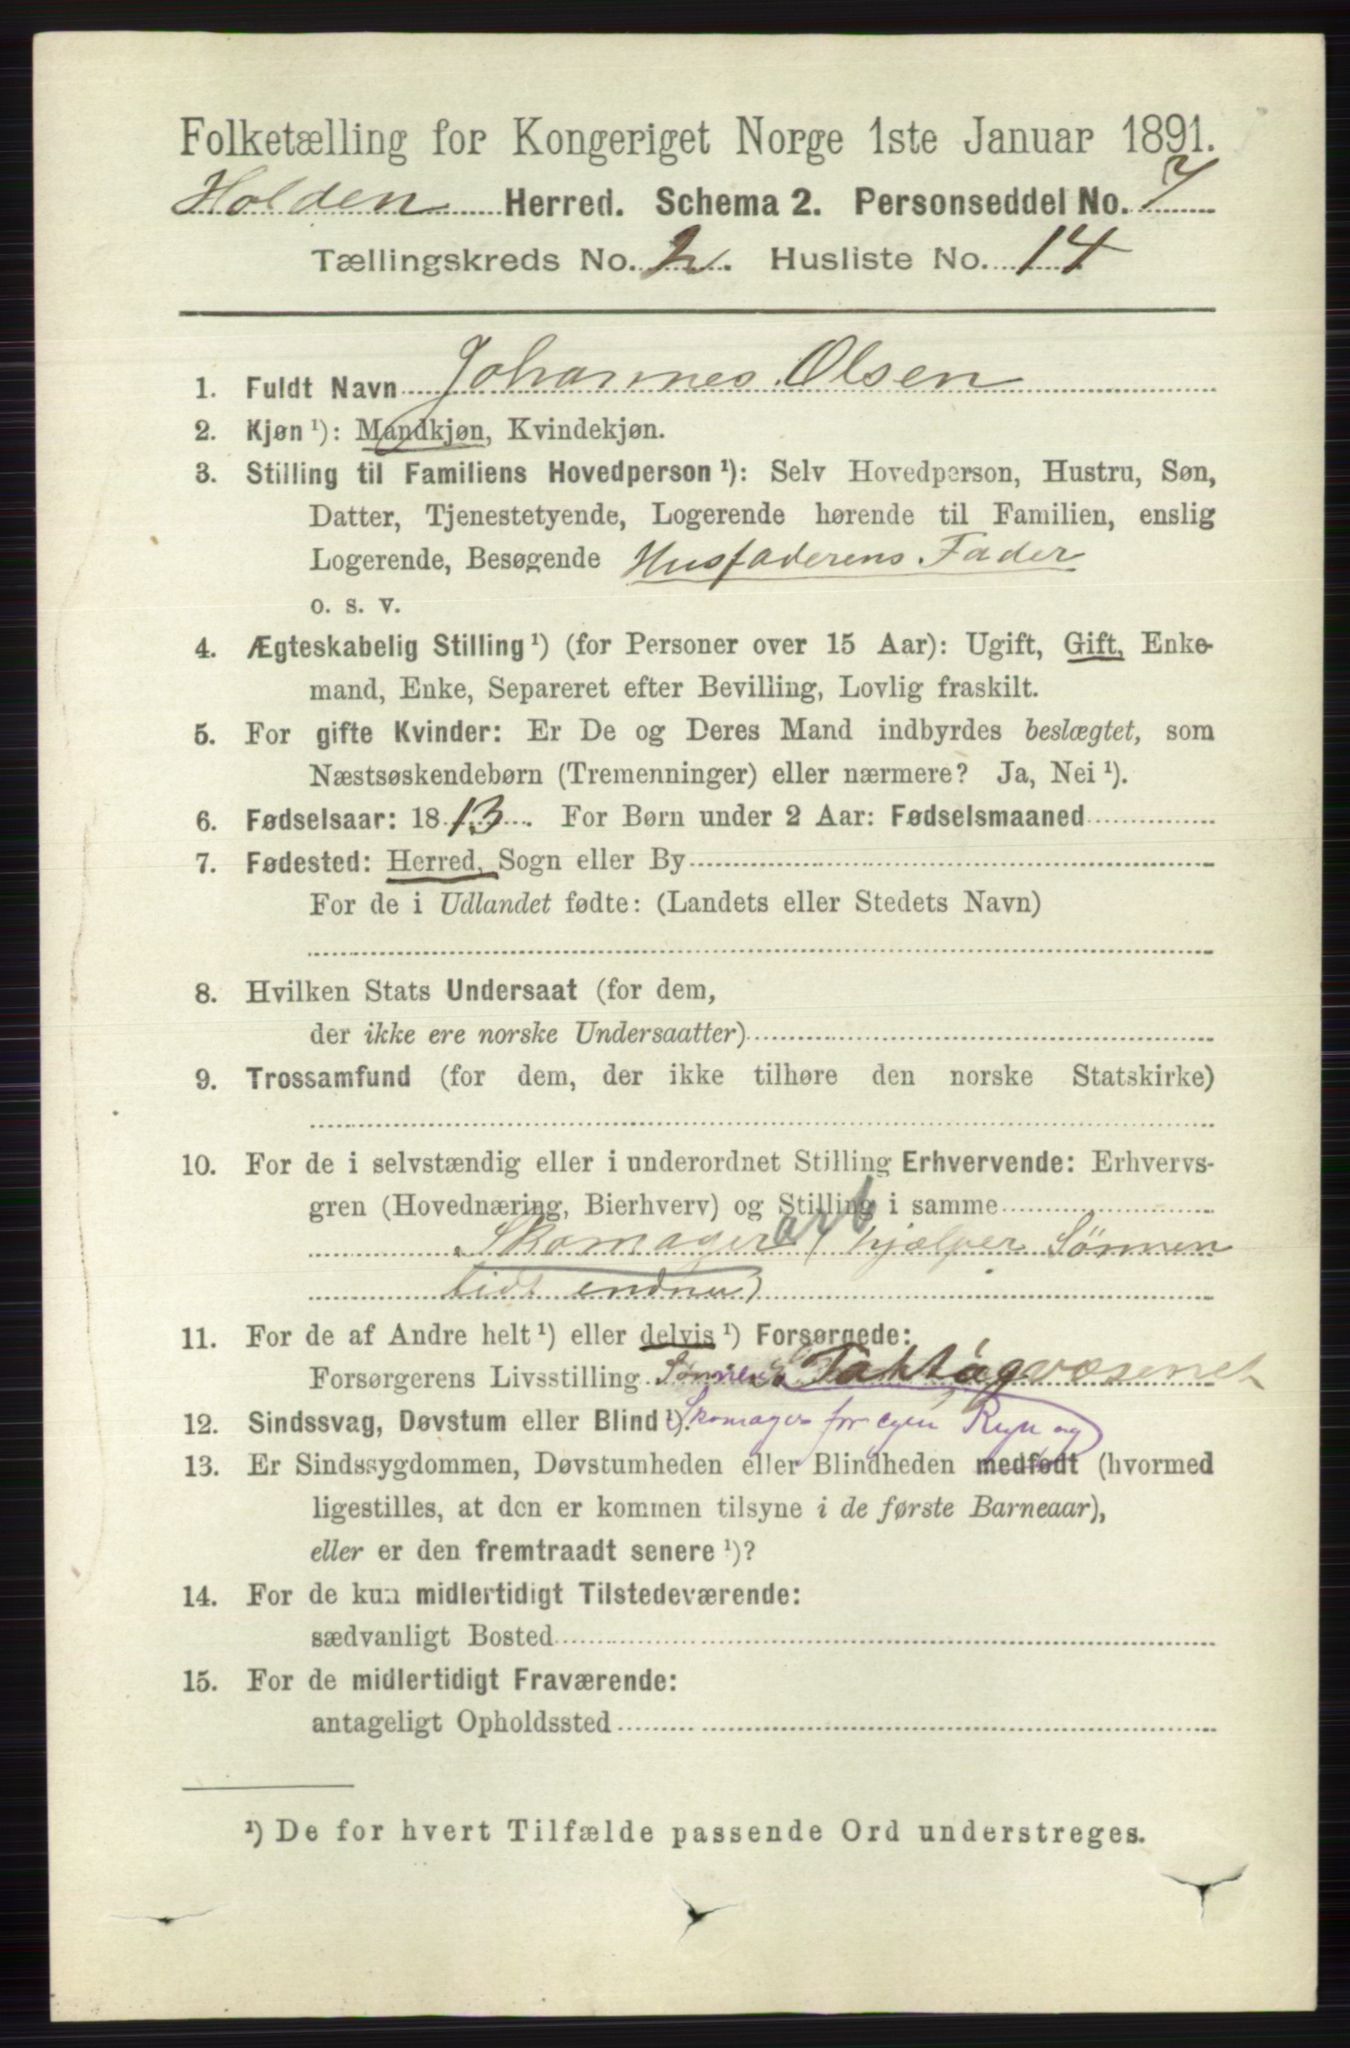 Folketælling for Kongeriget Norge 1ste Januar 1891.
Holden Herred. Schema 2. Personseddel No. 7
Tællingskreds No. 2. Husliste No. 14
1. Fuldt Navn Johannes Olsen
2. Kjøn ¹): Mandkjøn, Kvindekjøn.
3. Stilling til Familiens Hovedperson ¹): Selv Hovedperson, Hustru, Søn,
Datter, Tjenestetyende, Logerende hørende til Familien, enslig
Logerende, Besøgende Husfaderens Fader
o. s. v.
4. Ægteskabelig Stilling ¹) (for Personer over 15 Aar): Ugift, Gift, Enke-
mand, Enke, Separeret efter Bevilling, Lovlig fraskilt.
5. For gifte Kvinder: Er De og Deres Mand indbyrdes beslægtet, som
Næstsøskendebørn (Tremenninger) eller nærmere? Ja, Nei ¹).
6. Fødselsaar: 1813. For Børn under 2 Aar: Fødselsmaaned
7. Fødested: Herred, Sogn eller By
For de i Udlandet fødte: (Landets eller Stedets Navn)
8. Hvilken Stats Undersaat (for dem,
der ikke ere norske Undersaatter)
9. Trossamfund (for dem, der ikke tilhøre den norske Statskirke)
10. For de i selvstændig eller i underordnet Stilling Erhvervende: Erhvervs-
gren (Hovednæring, Bierhverv) og Stilling i samme
Skomager arb (hjælper Sønnen
tidt endnu)
11. For de af Andre helt ¹) eller delvis ¹) Forsørgede:
Forsørgerens Livsstilling Sønnen
12. Sindssvag, Døvstum eller Blind ¹). Skomager for egen Regn og
13. Er Sindssygdommen, Døvstumheden eller Blindheden medfødt (hvormed
ligestilles, at den er kommen tilsyne i de første Barneaar),
eller er den fremtraadt senere ¹)?
14. For de kun midlertidigt Tilstedeværende:
sædvanligt Bosted
15. For de midlertidigt Fraværende:
antageligt Opholdssted
¹) De for hvert Tilfælde passende Ord understreges.